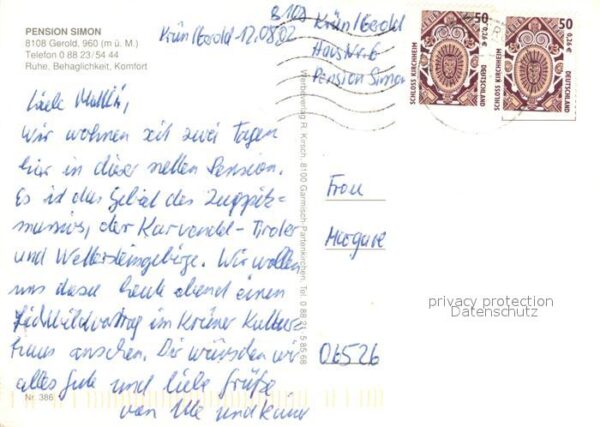 PENSION SIMON
8108 Gerold, 960 (m ü. M.)
Telefon 0 88 23/54 44
Ruhe, Behaglichkeit, Komfort
Krün/Gerold 12.08.02
Liebe
wir wohnen seit zwei Tagen
hier in dieser netten Pension.
Es ist das Gebiet des Zugspitz-
massivs, der Karwendel-Tiroler
und Wettersteingebirge. Wir wollen
uns dazu heute abend einen
Lichtbildvortrag im Krüner Kultur-
haus ansehen. Dir wünschen wir
alles Gute und liebe Grüße
von Ute und
Nr. 386
Werbeverlag R. Kirsch, 8100 Garmisch-Partenkirchen, Tel. 0 88 21/5 85 68
Krün/Gerold
Haus Nr. 6
Pension Simon
50
0,26 €
SCHLOSS KIRCHHEIM
DEUTSCHLAND
50
0,26 €
SCHLOSS KIRCHHEIM
DEUTSCHLAND
Frau
Margare
06526
privacy protection
Datenschutz